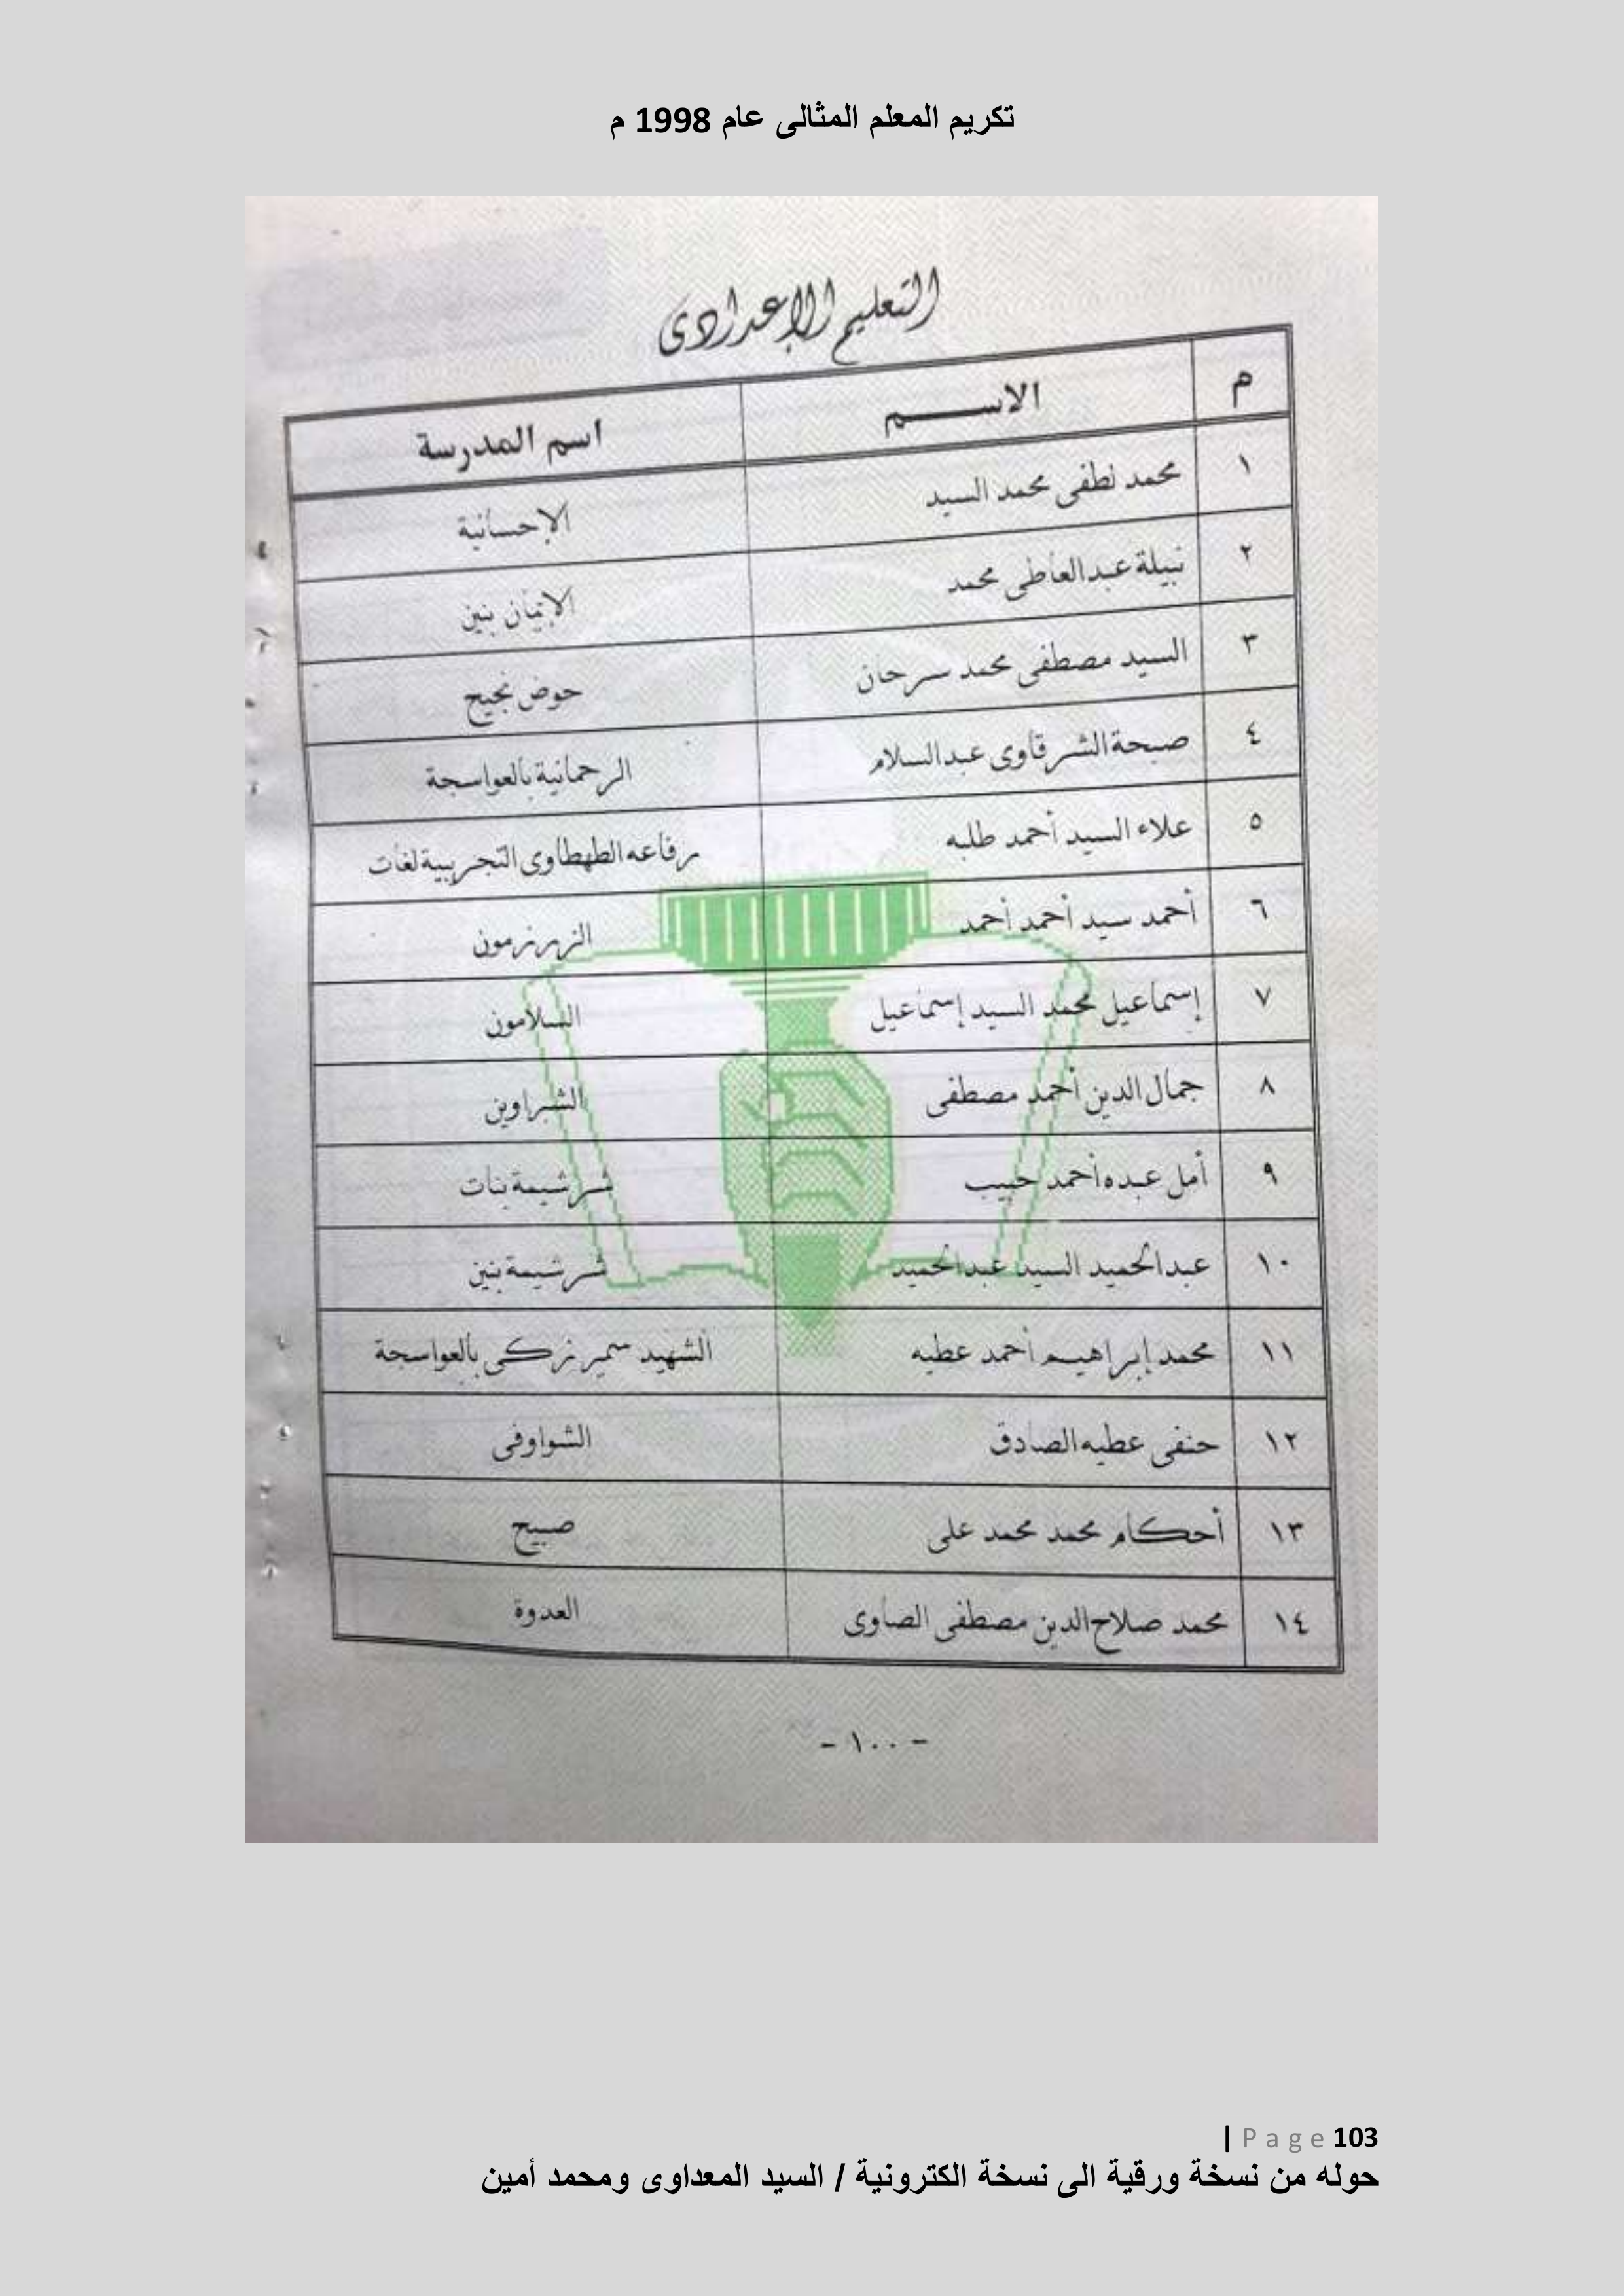 تكريم المعلم المثالى عام 1998 م
التعليم الإعدادى
م الاســـــم اسم المدرسة
١ محمد لطفى محمد السيد الإحسانية
٢ نبيلة عبدالعاطى محمد الإيمان بنين
٣ السيد مصطفى محمد سرحان حوض نجيح
٤ صبحة الشرقاوى عبدالسلام الرحمانية بالعواسجة
٥ علاء السيد أحمد طلبه رفاعه الطهطاوى التجريبية لغات
٦ أحمد سيد أحمد أحمد الزرزمون
٧ إسماعيل محمد السيد إسماعيل السلامون
٨ جمال الدين أحمد مصطفى الشبراوين
٩ أمل عبده أحمد حبيب شرشيمة بنات
١٠ عبدالحميد السيد عبدالحميد شرشيمة بنين
١١ محمد إبراهيم أحمد عطيه الشهيد سمير زكى بالعواسجة
١٢ حنفى عطيه الصادق الشواوفى
١٣ أحكام محمد محمد على صبيح
١٤ محمد صلاح الدين مصطفى الصاوى العدوة
- ١٠٠ -
| Page 103
حوله من نسخة ورقية الى نسخة الكترونية / السيد المعداوى ومحمد أمين